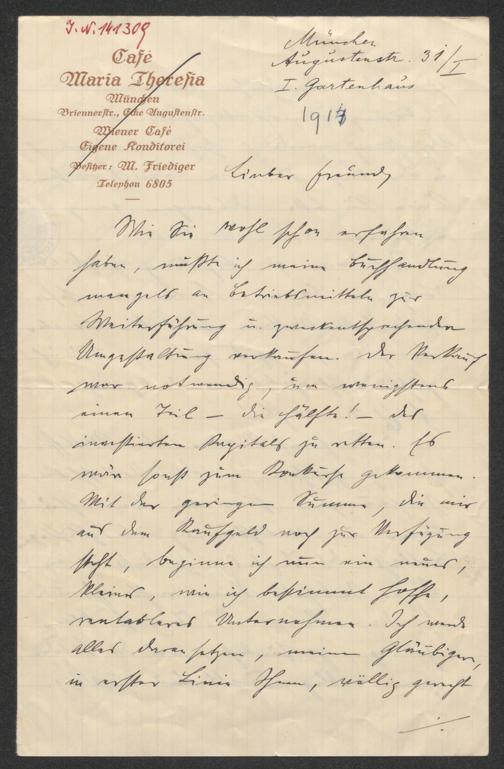 J. N. 141309
Café
Maria Theresia
München
Briennerstr., Ecke Augustenstr.
Wiener Café
Eigene Konditorei
Besitzer: M. Friediger
Telephon 6805
München
Augustenstr. 31/I
I. Gartenhaus
191
Lieber Freund,
Wie Sie wohl schon erfahren
haben, mußte ich meine Buchhandlung
mangels an Betriebsmitteln zur
Weiterführung u. zweckentsprechenden
Umgestaltung verkaufen. Der Verkauf
war notwendig, um wenigstens
einen Teil – die Hälfte! – des
investierten Kapitals zu retten. Es
wär sonst zum Konkurse gekommen.
Mit der geringen Summe, die mir
aus dem Kaufgeld noch zur Verfügung
steht, beginne ich nun ein neues,
kleines, wie ich bestimmt hoffe,
rentableres Unternehmen. Ich werde
alles daransetzen, meinen Gläubigern,
in erster Linie Ihnen, völlig gerecht
./.